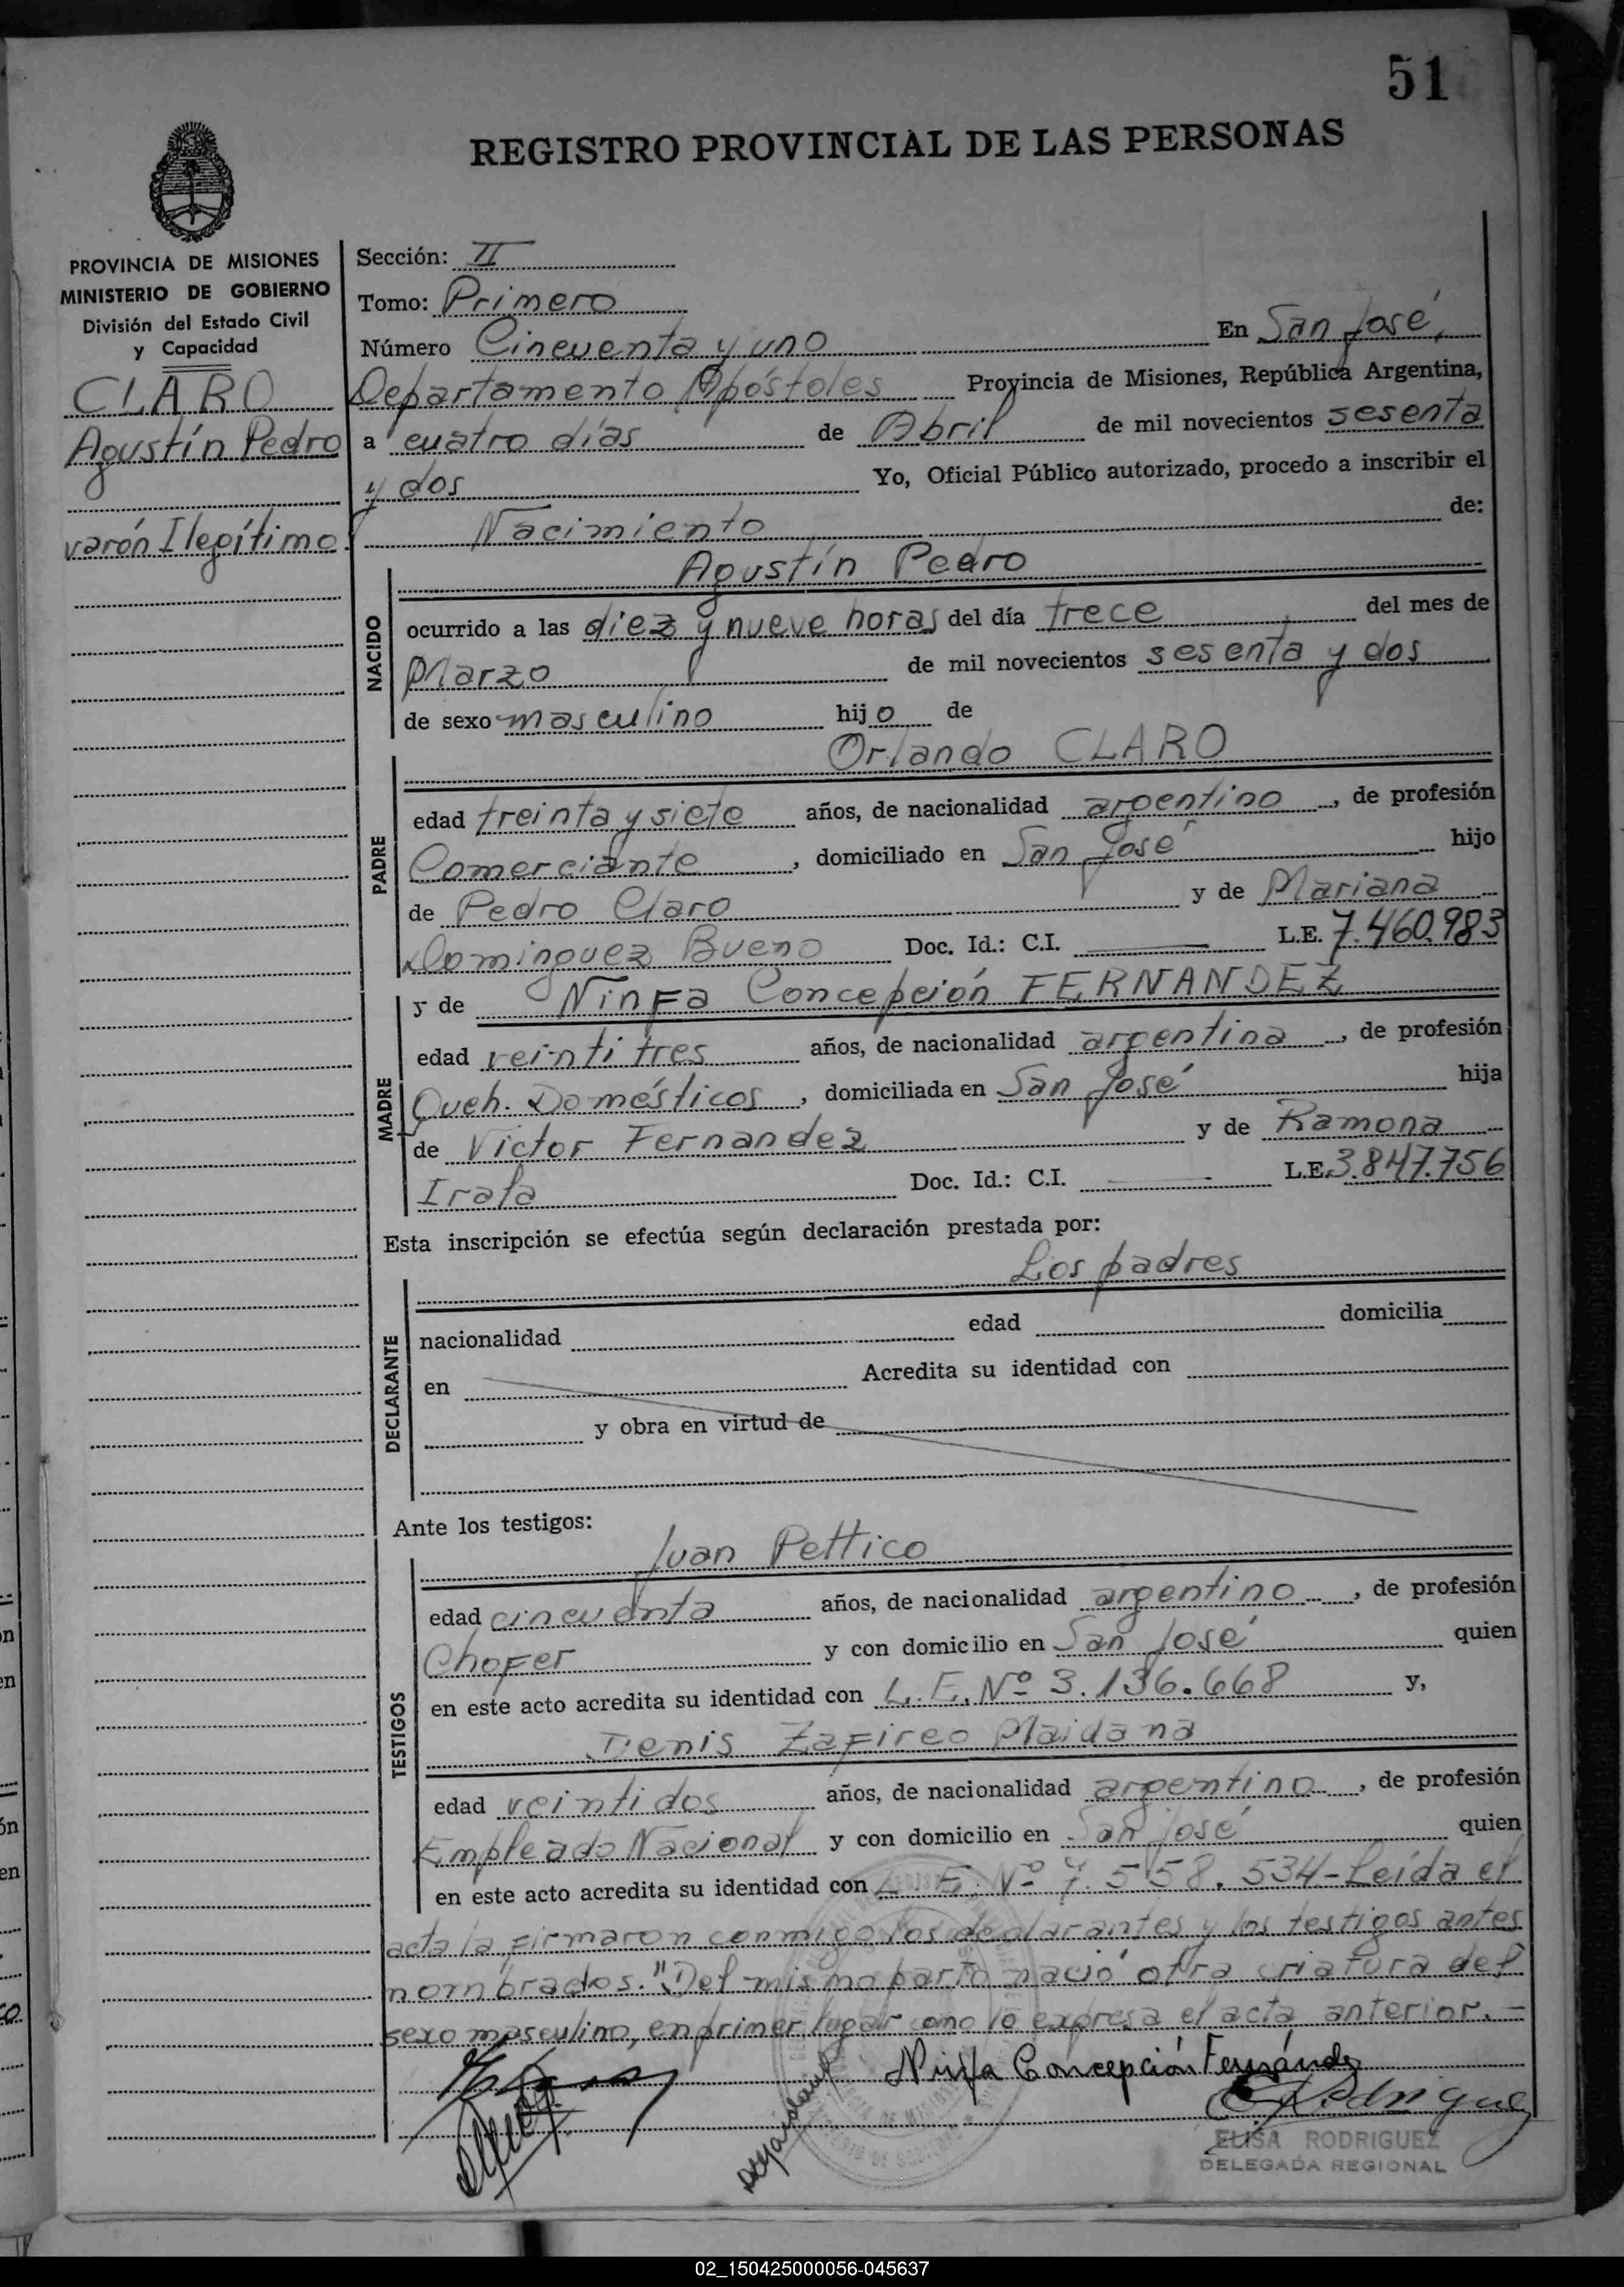 51
REGISTRO PROVINCIAL DE LAS PERSONAS
PROVINCIA DE MISIONES
MINISTERIO DE GOBIERNO
División del Estado Civil
y Capacidad
CLARO
Agustín Pedro
varón Ilegítimo.
Sección: II
Tomo: Primero
Número Cincuenta y uno En San José,
Departamento Apóstoles Provincia de Misiones, República Argentina,
a cuatro días de Abril de mil novecientos sesenta
y dos Yo, Oficial Público autorizado, procedo a inscribir el
Nacimiento de:
NACIDO
Agustín Pedro
ocurrido a las diez y nueve horas del día trece del mes de
Marzo de mil novecientos sesenta y dos
de sexo masculino hijo de
PADRE
Orlando CLARO
edad treinta y siete años, de nacionalidad argentino, de profesión
Comerciante, domiciliado en San José hijo
de Pedro Claro y de Mariana
Dominguez Bueno Doc. Id.: C.I. L.E. 7.460.983
MADRE
y de Ninfa Concepción FERNANDEZ
edad veinti tres años, de nacionalidad argentina, de profesión
Queh. Domésticos, domiciliada en San José hija
de Victor Fernandez y de Ramona
Irala Doc. Id.: C.I. L.E. 3.847.756
Esta inscripción se efectúa según declaración prestada por:
DECLARANTE
Los padres
nacionalidad edad domicilia
en Acredita su identidad con
y obra en virtud de
Ante los testigos:
TESTIGOS
Juan Pettico
edad cincuenta años, de nacionalidad argentino, de profesión
Chofer y con domicilio en San José quien
en este acto acredita su identidad con L.E. Nº 3.136.668 y,
Denis Zafireo Maidana
edad veintidos años, de nacionalidad argentino, de profesión
Empleado Nacional y con domicilio en San José quien
en este acto acredita su identidad con L.E. Nº 7.558.534- Leída el
acta la firmaron conmigo los declarantes y los testigos antes
nombrados. "Del mismo parto nació otra criatura del
sexo masculino, en primer lugar como lo expresa el acta anterior.-
Ninfa Concepción Fernández
ERodriguez
ELISA RODRIGUEZ
DELEGADA REGIONAL
02_150425000056-045637